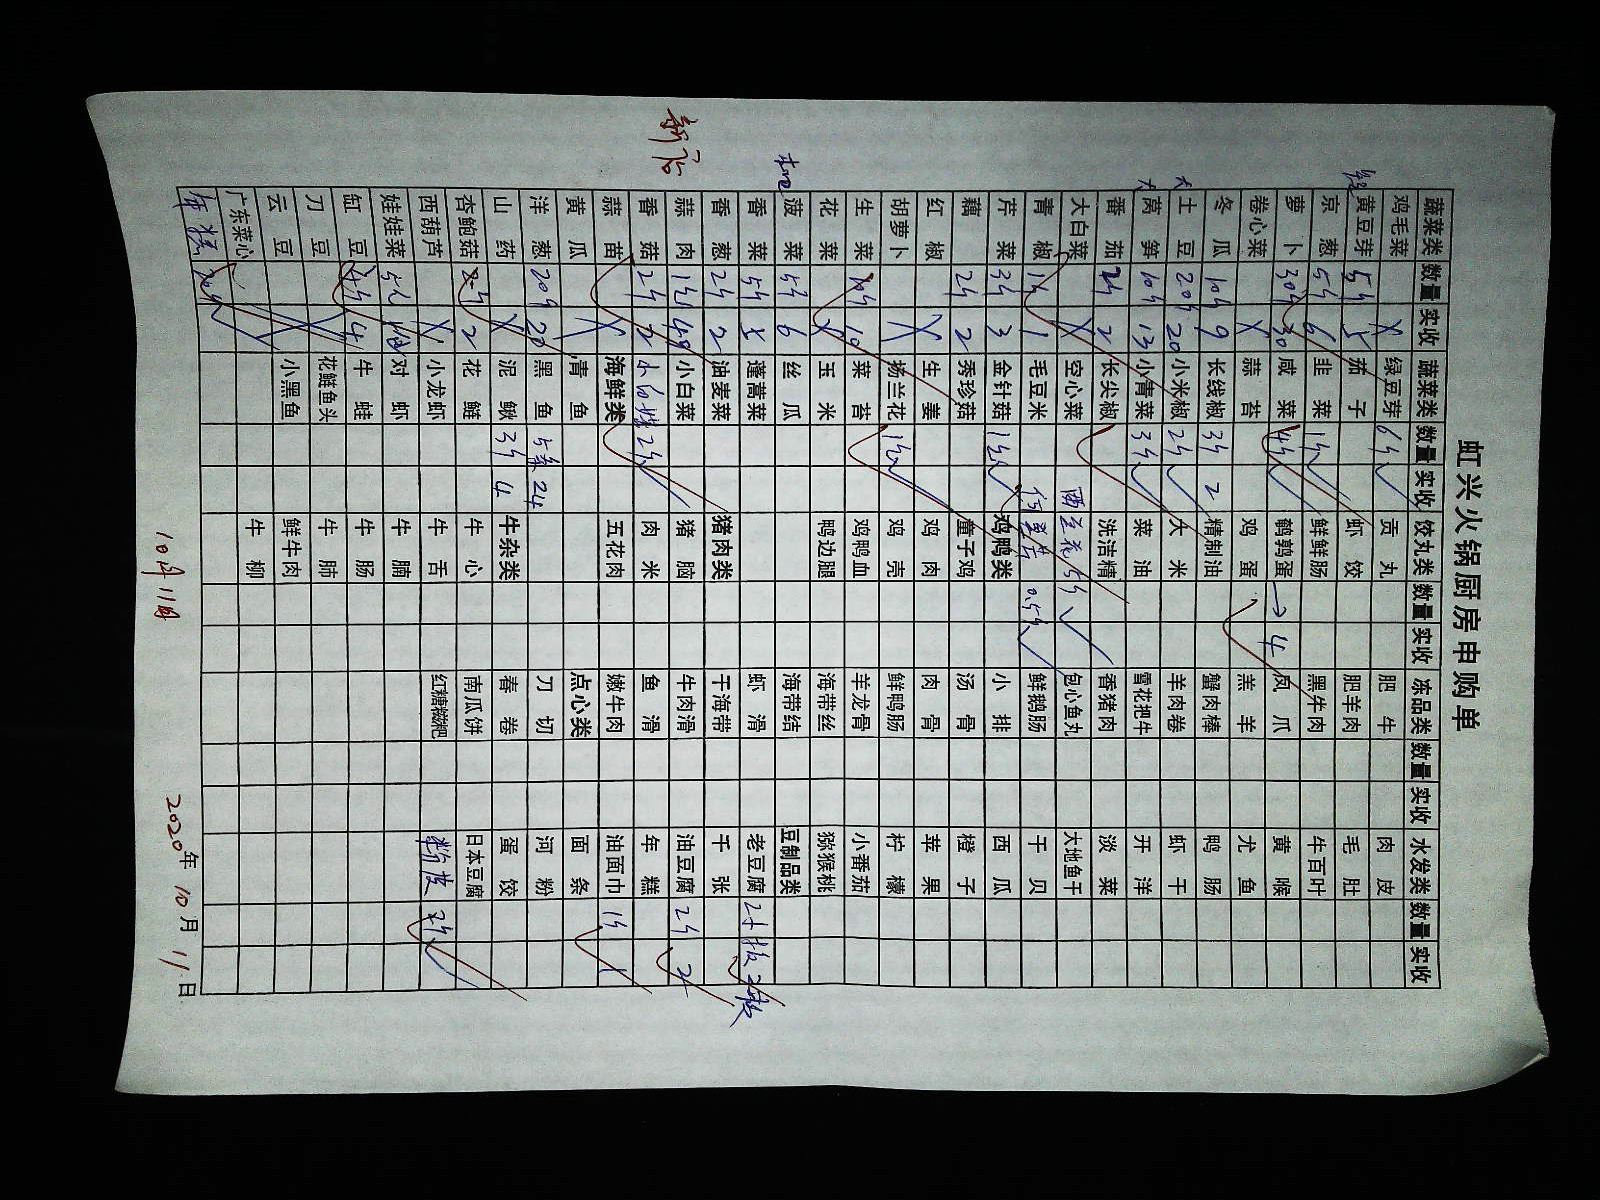 虹兴火锅厨房申购单
蔬菜类 数量 实收 蔬菜类 数量 实收 饺丸类 数量 实收 冻品类 数量 实收 水发类 数量 实收
鸡毛菜 X 绿豆芽 6斤 贡丸 肥牛 肉皮
黄豆芽 5斤 5 茄子 虾饺 肥羊肉 毛肚
京葱 5斤 6 韭菜 1斤 鲜鲜肠 黑牛肉 牛百叶
萝卜 30斤 30 咸菜 4斤 鹌鹑蛋 → 4 凤爪 黄喉
卷心菜 X 蒜苔 鸡蛋 羔羊 尤鱼
冬瓜 10斤 9 长线椒 3斤 2 精制油 蟹肉棒 鸭肠
大 土豆 20斤 20 小米椒 2斤 大米 羊肉卷 虾干
大 莴笋 10斤 13 小青菜 3斤 菜油 雪花把牛 开洋
番茄 2斤 2 长尖椒 洗洁精 香猪肉 淡菜
大白菜 X 空心菜 西兰花 5斤 包心鱼丸 大地鱼干
青椒 1斤 1 毛豆米 0.5斤 鲜鹅肠 干贝
芹菜 3斤 3 金针菇 鸡鸭类 小排 西瓜
藕 2斤 2 秀珍菇 童子鸡 汤骨 橙子
红椒 生姜 鸡肉 肉骨 苹果
胡萝卜 X 扬兰花 鸡壳 鲜鸭肠 柠檬
生菜 10斤 10 菜苔 鸡鸭血 羊龙骨 小番茄
花菜 X 玉米 鸭边腿 海带丝 猕猴桃
菠菜 5斤 6 丝瓜 海带结 豆制品类
香菜 5斤 5 蓬蒿菜 虾滑 老豆腐 2板 2板
香葱 2斤 2 油麦菜 猪肉类 干海带 千张
蒜肉 小白菜 猪脑 牛肉滑 油豆腐 2斤 2
新店
香菇 2斤 2 2斤 肉米 鱼滑 年糕
蒜苗 X 海鲜类 五花肉 嫩牛肉 油面巾 1斤 1
黄瓜 X 青鱼 点心类 面条
洋葱 20斤 20 黑鱼 5条 24 刀切 河粉
山药 X 泥鳅 3斤 4 牛杂类 春卷 蛋饺
杏鲍菇 2斤 2 花鲢 牛心 南瓜饼 日本豆腐
西葫芦 X 小龙虾 牛舌 红糖糍粑 粉皮 2斤
娃娃菜 对虾 牛腩
缸豆 4斤 4 牛蛙 牛肠
刀豆 花鲢鱼头 牛肺
云豆 小黑鱼 鲜牛肉
广东菜心 牛柳
10月11日 2020年10月11日